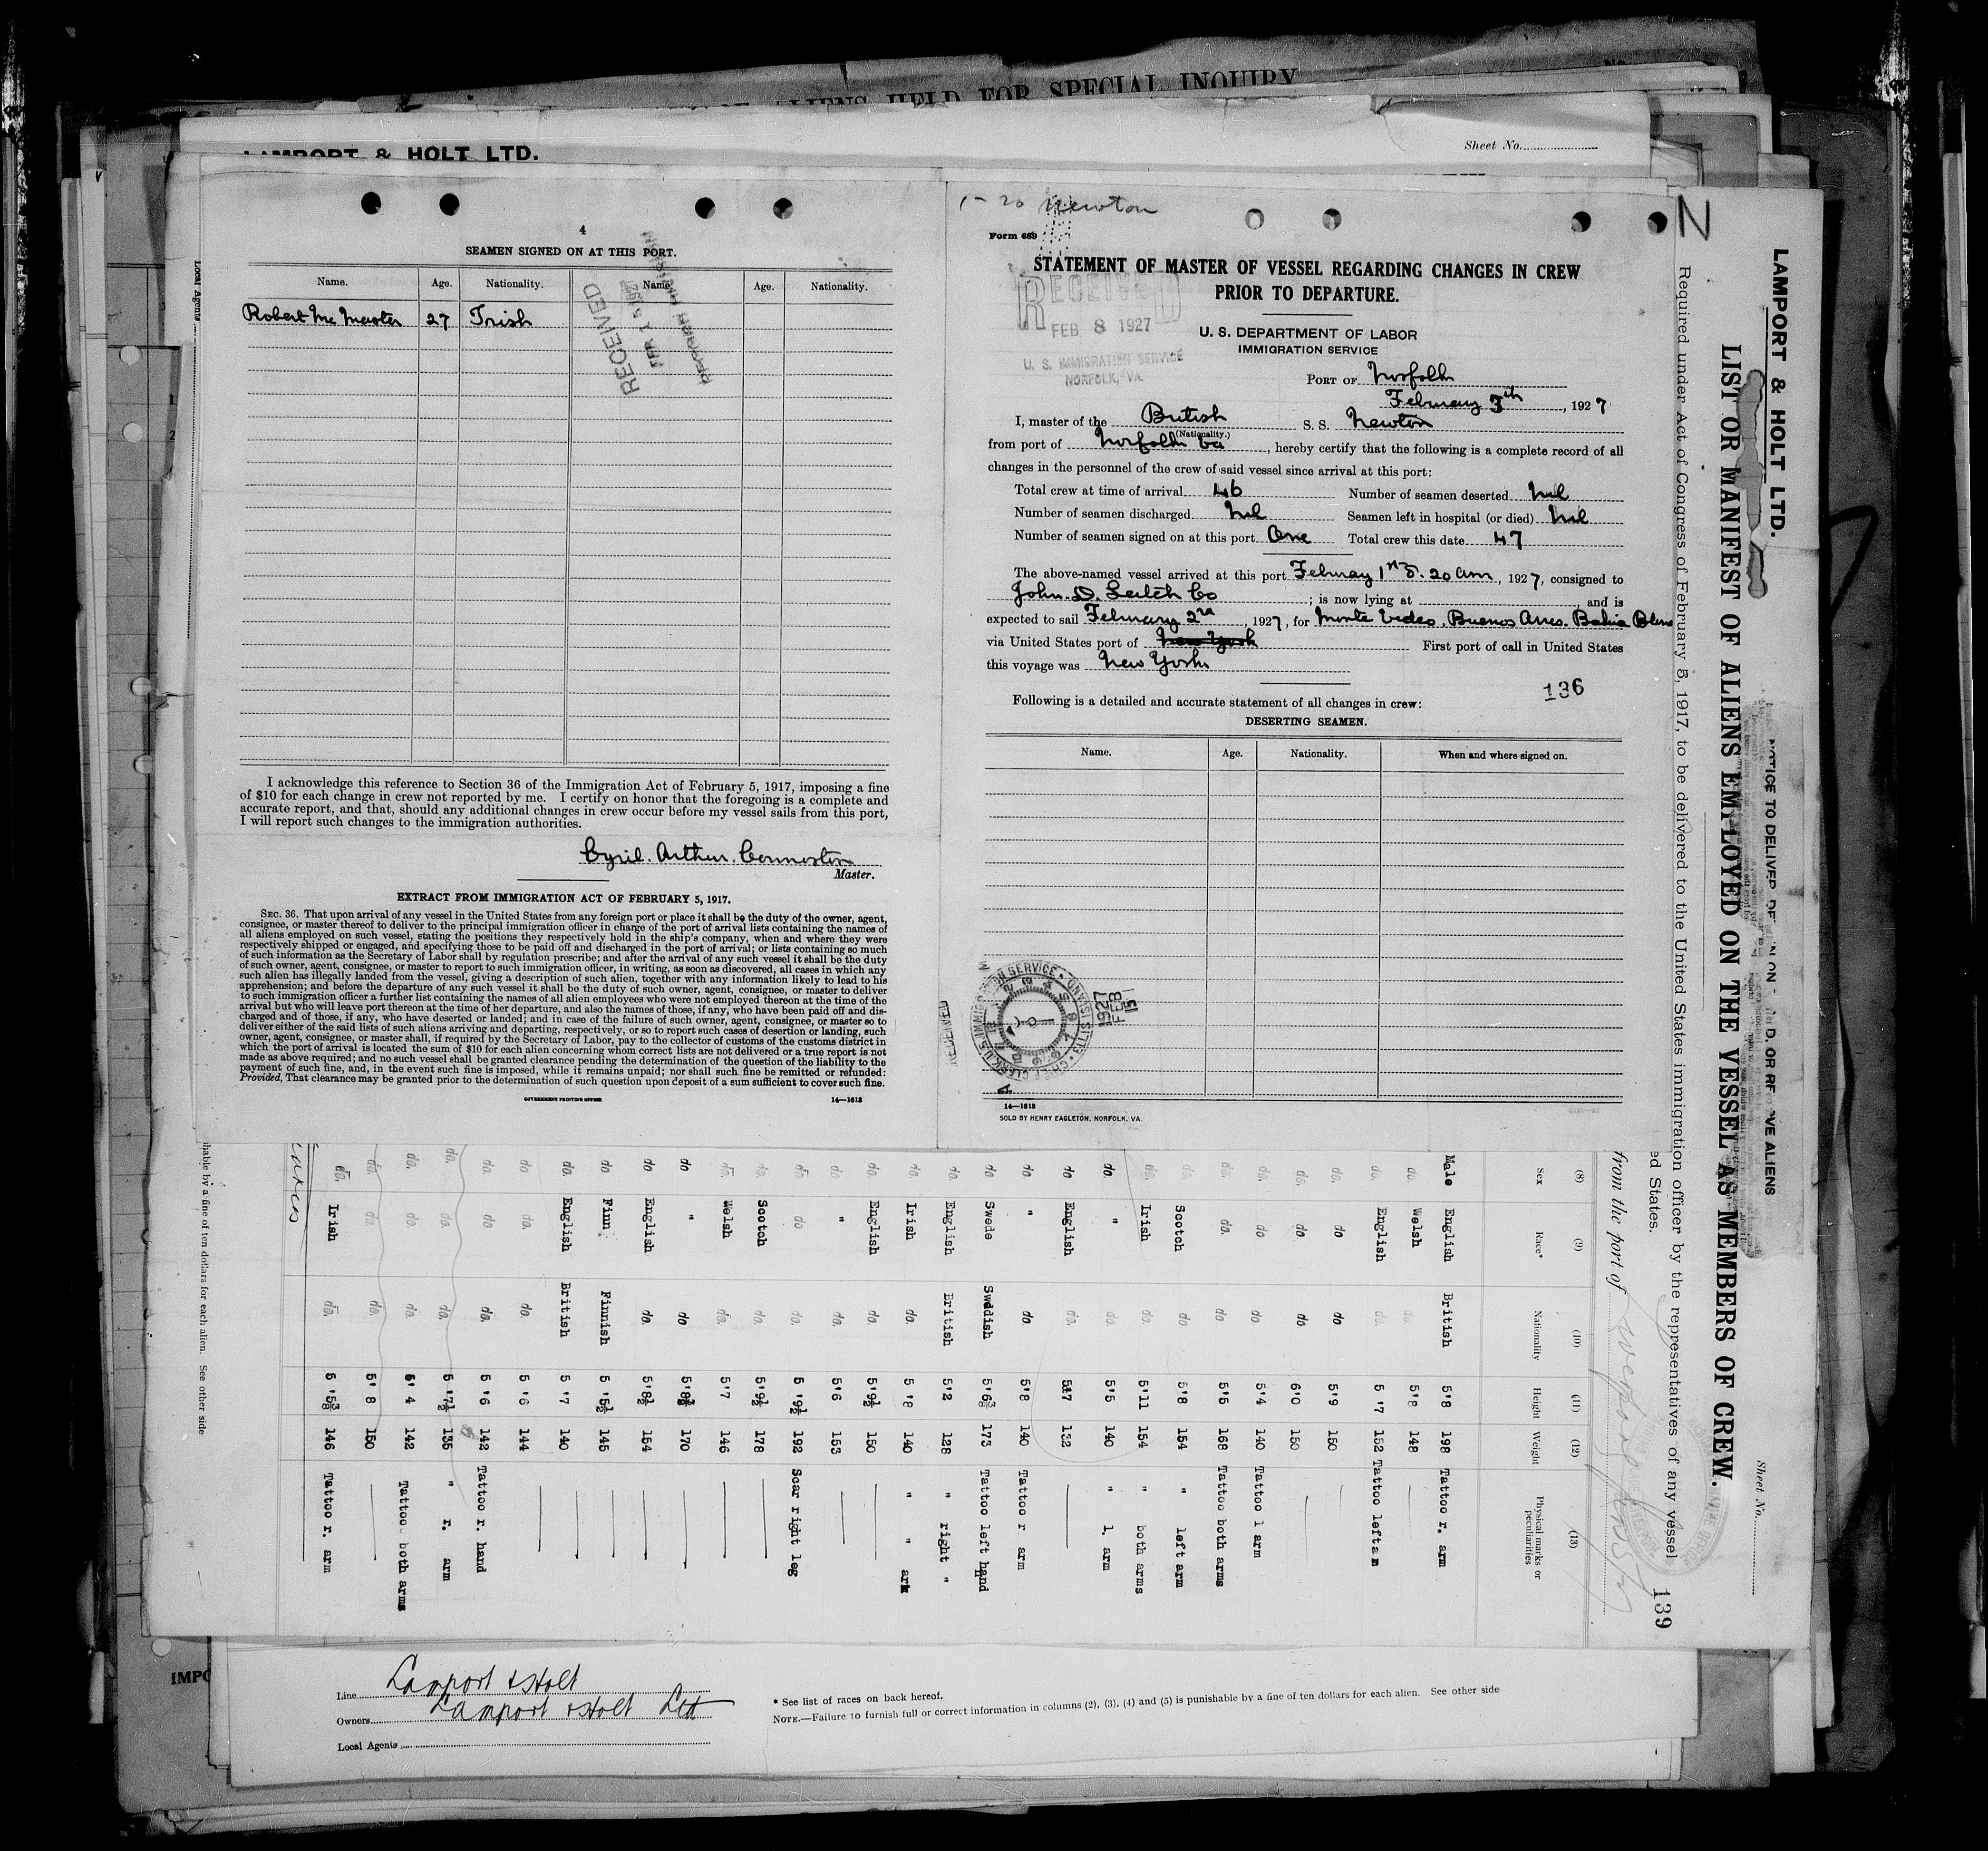 ALIENS HELD FOR SPECIAL INQUIRY
LAMPORT & HOLT LTD.
Sheet No.
4
SEAMEN SIGNED ON AT THIS PORT.
Name. Age. Nationality. Name. Age. Nationality.
Robert Mc Master 27 Irish
RECEIVED
I acknowledge this reference to Section 36 of the Immigration Act of February 5, 1917, imposing a fine
of $10 for each change in crew not reported by me. I certify on honor that the foregoing is a complete and
accurate report, and that, should any additional changes in crew occur before my vessel sails from this port,
I will report such changes to the immigration authorities.
Cyril. Arthur.
Master.
EXTRACT FROM IMMIGRATION ACT OF FEBRUARY 5, 1917.
SEC. 36. That upon arrival of any vessel in the United States from any foreign port or place it shall be the duty of the owner, agent,
consignee, or master thereof to deliver to the principal immigration officer in charge of the port of arrival lists containing the names of
all aliens employed on such vessel, stating the positions they respectively hold in the ship's company, when and where they were
respectively shipped or engaged, and specifying those to be paid off and discharged in the port of arrival; or lists containing so much
of such information as the Secretary of Labor shall by regulation prescribe; and after the arrival of any such vessel it shall be the duty
of such owner, agent, consignee, or master to report to such immigration officer, in writing, as soon as discovered, all cases in which any
such alien has illegally landed from the vessel, giving a description of such alien, together with any information likely to lead to his
apprehension; and before the departure of any such vessel it shall be the duty of such owner, agent, consignee, or master to deliver
to such immigration officer a further list containing the names of all alien employees who were not employed thereon at the time of the
arrival but who will leave port thereon at the time of her departure, and also the names of those, if any, who have been paid off and dis-
charged and of those, if any, who have deserted or landed; and in case of the failure of such owner, agent, consignee, or master so to
deliver either of the said lists of such aliens arriving and departing, respectively, or so to report such cases of desertion or landing, such
owner, agent, consignee, or master shall, if required by the Secretary of Labor, pay to the collector of customs of the customs district in
which the port of arrival is located the sum of $10 for each alien concerning whom correct lists are not delivered or a true report is not
made as above required; and no such vessel shall be granted clearance pending the determination of the question of the liability to the
payment of such fine, and, in the event such fine is imposed, while it remains unpaid; nor shall such fine be remitted or refunded:
Provided, That clearance may be granted prior to the determination of such question upon deposit of a sum sufficient to cover such fine.
GOVERNMENT PRINTING OFFICE 14—1613
Newton
Form 689
STATEMENT OF MASTER OF VESSEL REGARDING CHANGES IN CREW
PRIOR TO DEPARTURE.
RECEIVED
FEB 8 1927
U. S. IMMIGRATION SERVICE
NORFOLK, VA.
U. S. DEPARTMENT OF LABOR
IMMIGRATION SERVICE
PORT OF Norfolk
February 3th, 1927
I, master of the British S. S. Newton
(Nationality.)
from port of Norfolk Va, hereby certify that the following is a complete record of all
changes in the personnel of the crew of said vessel since arrival at this port:
Total crew at time of arrival 46 Number of seamen deserted Nil
Number of seamen discharged Nil Seamen left in hospital (or died) Nil
Number of seamen signed on at this port One Total crew this date 47
The above-named vessel arrived at this port Februay 1st 5. 20 am, 1927, consigned to
John. D. Leitch Co; is now lying at and is
expected to sail February 2nd, 1927, for Monte Video. Buenos Aires. Bahia Blan
via United States port of New York First port of call in United States
this voyage was New York
136
Following is a detailed and accurate statement of all changes in crew:
DESERTING SEAMEN.
Name. Age. Nationality. When and where signed on.
1927
FEB
15
14—1613
SOLD BY HENRY EAGLETON, NORFOLK, VA.
N
LAMPORT & HOLT LTD.
Sheet No.
NOTICE TO DELIVER
OR
VE ALIENS
LIST OR MANIFEST OF ALIENS EMPLOYED ON THE VESSEL AS MEMBERS OF CREW.
Required under Act of Congress of February 5, 1917, to be delivered to the United States immigration officer by the representatives of any vessel
ed States.
139
from the port of Liverpool
(8) (9) (10) (11) (12) (13)
Sex Race* Nationality Height Weight Physical marks or peculiarities
Male English British 5'8 198 Tattoo r. arm
do. Welsh do 5'8 148
do. English do. 5 '7 152 Tattoo left a m
do. do do 5'9 150
do. do do 6'0 150
do. do do. 5'4 140 Tattoo l arm
do. do. do 5'5 168 Tattoo both arms
do. Scotch do 5'8 154 " left arm
do. Irish do. 5'11 154 " both arms
do. " do. 5'5 140 " l. arm
do English do. 5'7 132
do " do 5'8 140 Tattoo r arm
do Swede Swedish 5'6 3/8 173 Tattoo left hand
do. English British 5'2 128 " right "
do. Irish do. 5 '8 140 " " ark
do. English do. 5'9½ 150
do " do. 5'6 153
do do do. 5 '9½ 192 Scar right leg
do. Scotch do. 5'9½ 178
do. Welsh do. 5'7 146
do " do 170
do English do. 5'8½ 154
do Finn Finnish 5 '5½ 145
do. English British 5 '7 140
do. do. do. 5 '6 144
do. do do. 5 '6 142 Tattoo r. hand
do. do. do. 5 '7½ 135 " r. arm
do. do. do. 5' 4 142 Tattoo both arms
do. do. do. 5' 8 150
do. Irish do. 5 '5 3/8 146 Tattoo r. arm
Local Agents
hable by a fine of ten dollars for each alien. See other side
IMPO
Line Lamport & Holt
Owners Lamport & Holt Ltd
Local Agents
* See list of races on back hereof.
NOTE.—Failure to furnish full or correct information in columns (2), (3), (4) and (5) is punishable by a fine of ten dollars for each alien. See other side